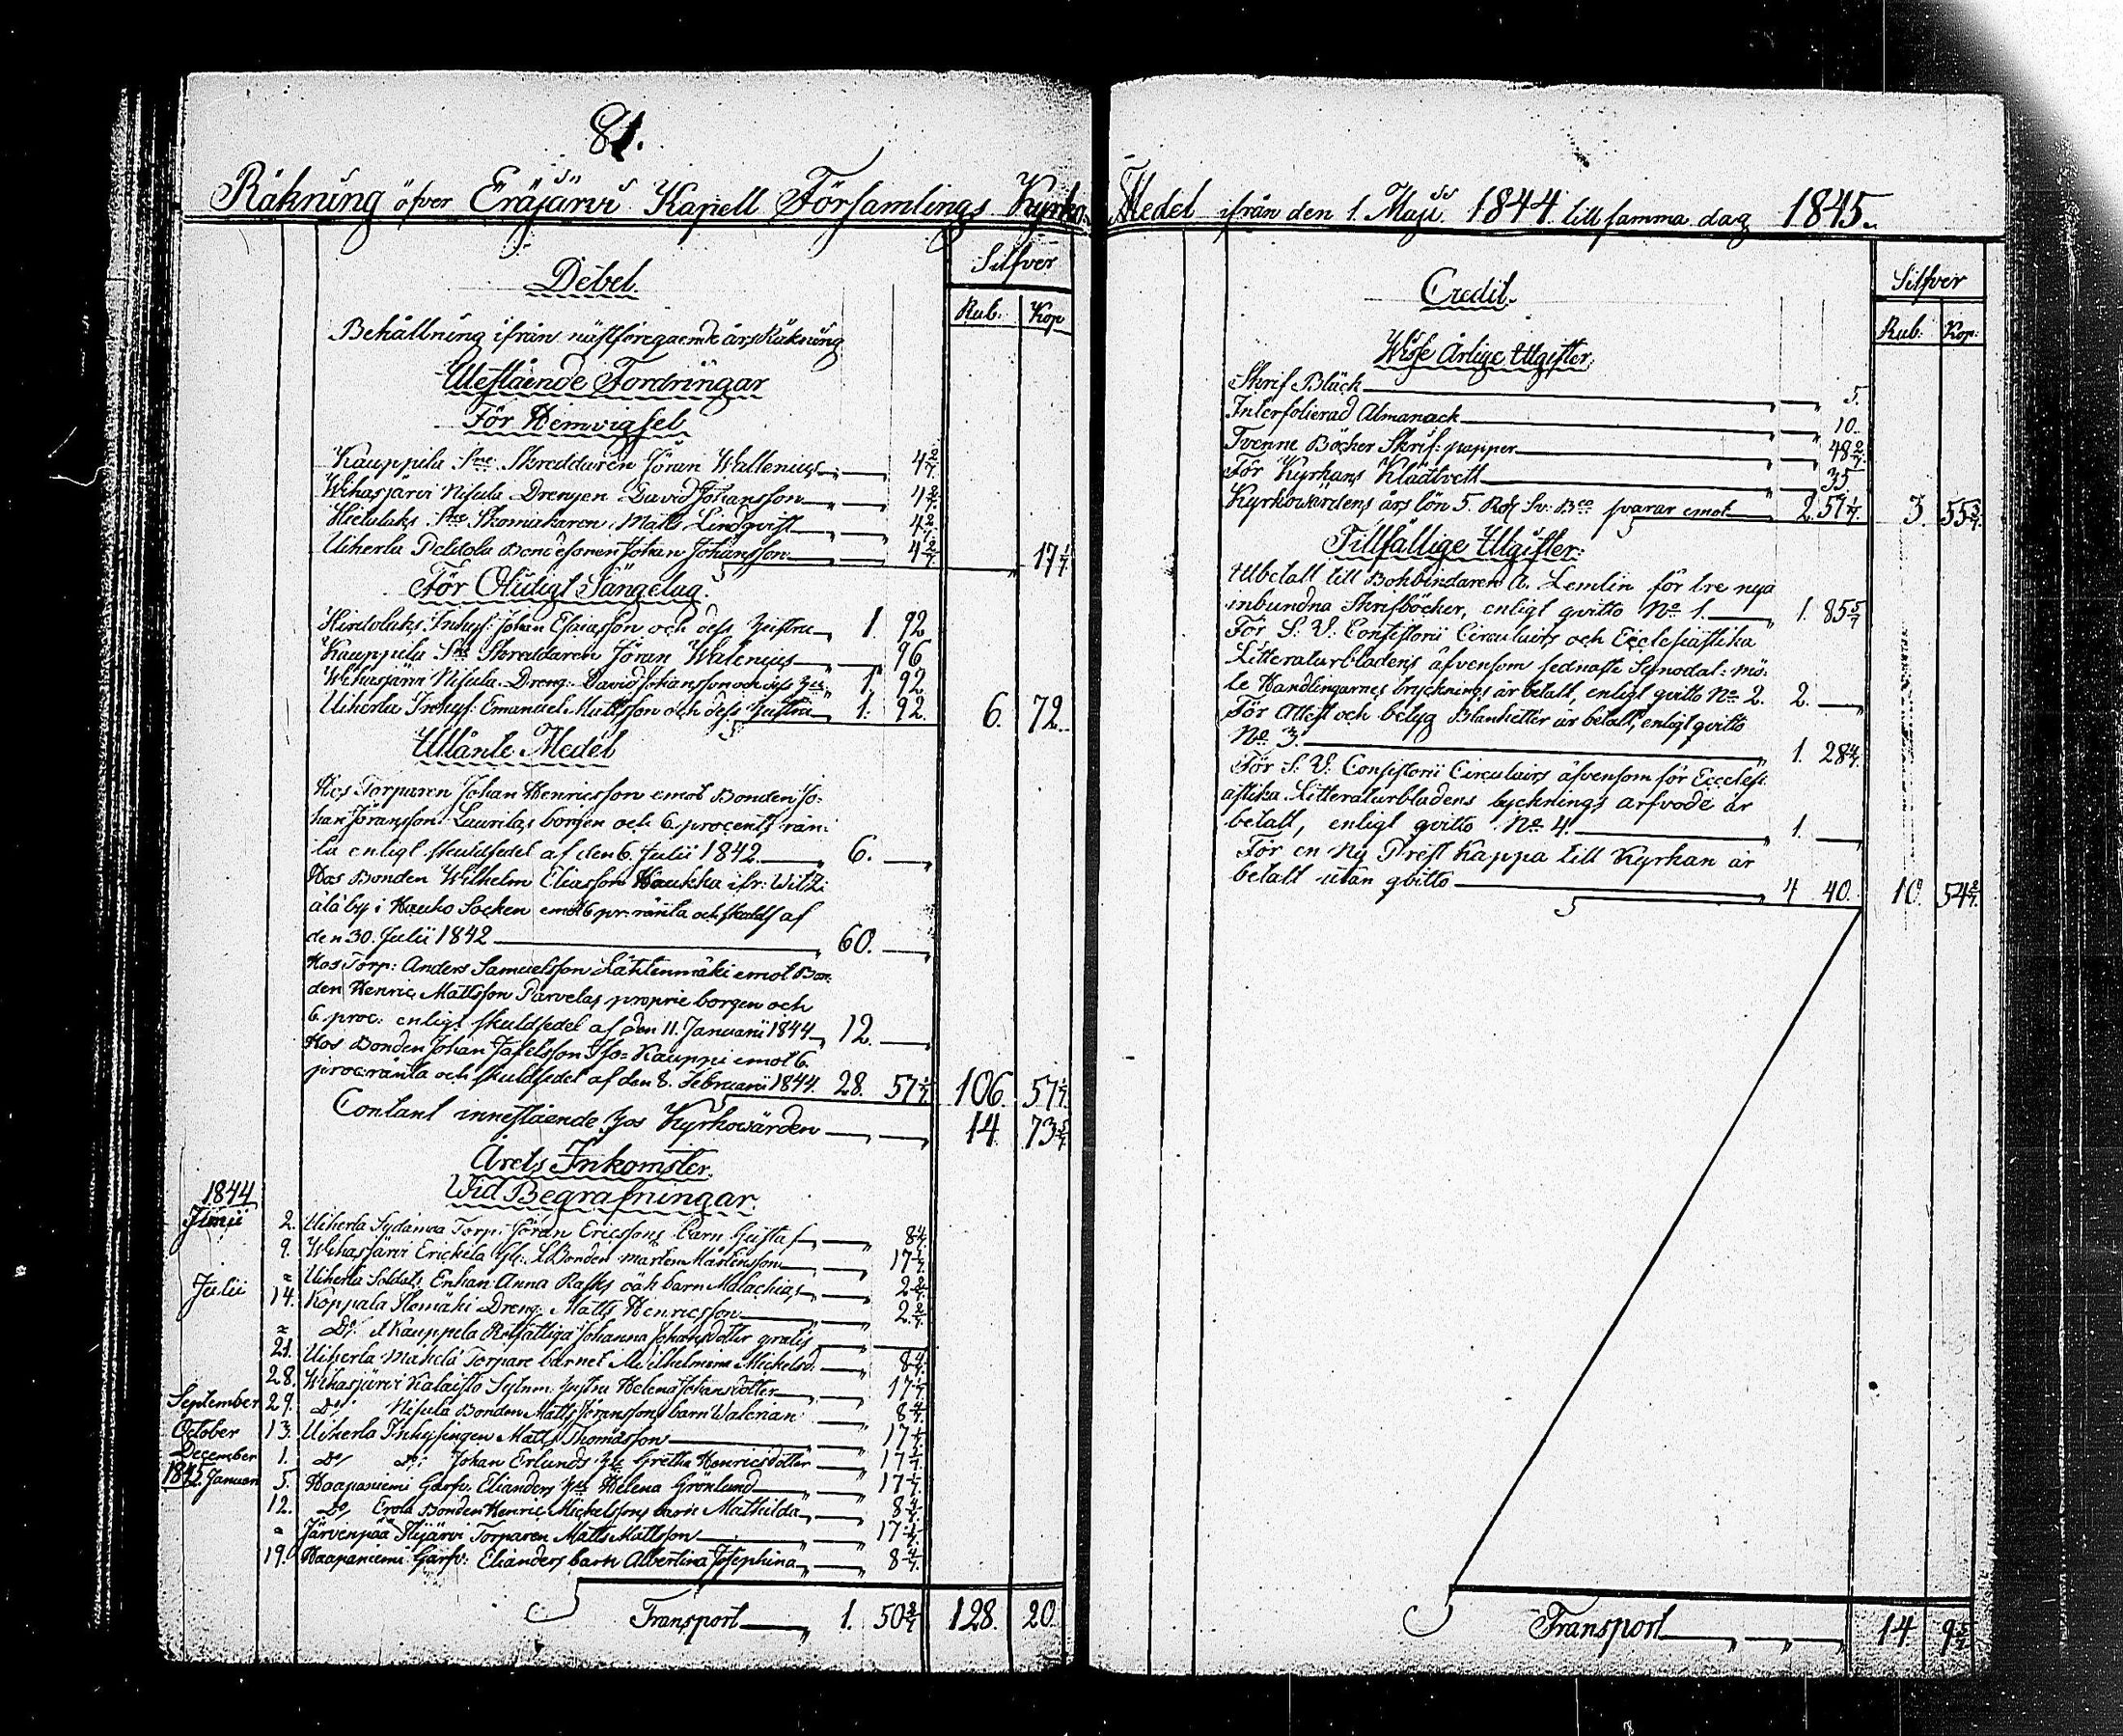 81.
Räkning öfver Eräjärvi Kapell Församlings Kyrko
Silfver
Debet.
Rub. Kop
Behållning ifrån nästföregaende årsRäkning
Utestående Fordringar
För Hemvigsel
Kauppila Sne Skreddaren Jöran Wallenius 4 2/7.
Wihasjärvi Nisula Drengen David Johansson 4 2/7.
Hietulaks Sne Skomakaren Matts Lindqvist 4 2/7.
Uiherla Peldola Bondesonen Johan Johansson 4 2/7. 17 1/7.
För Otidigt Sängelag.
Hirtolaks Inhys: Johan Esaiasson och dess hustru 1. 92
Kauppila Sne Skreddaren Jöran Walenius 96
Wihasjärvi Nisula Dreng: David Johansson och dess hu: 1. 92
Uiherla Inhys: Emanuel Mattsson och dess hustru 1. 92. 6. 72.
Utlånte Medel
Hos Torparen Johan Henricsson emot Bonden Jo-
han Jöransson Laurilas borgen och 6. procents rän-
ta enligt skuldsedel af den 6. Julii 1842. 6.
Hos Bonden Wilhelm Eliasson Haukka ifr: Witzi
älä by i Hauko Socken emot 6 pr: ränta och skulds af
den 30. Julii 1842 60.
Hos Torp: Anders Samuelsson Lähtenmäki emot Bon
den Henric Mattsson Parvelas proprie borgen och
6. proc: enligt skuldsedel af den 11. Januarii 1844 12.
Hos Bonden Johan Jakelsson Iso-Kauppi emot 6.
proc: ränta och skuldsedel af den 8. Februarii 1844. 28. 57 1/7. 106. 57 1/7.
Contant innestående hos Kyrkowärden 14 73 5/7.
Årets Inkomster.
Wid Begrafningar.
1844
Junii 2. Uiherla Sydänmaa Torp: Jöran Ericssons barn Gustaf 8 4/7.
9. Wihasjärvi Erickila Bonden Mårten Mårtensson 17 1/7.
" Uiherla Soldats Enkan Anna Rasks oäk barn Malachias 2 2/7.
Julii 14. Koppala Ilomäki Dreng: Matts Henricsson 2 2/7.
" Do: Kauppila Rotfattiga Johanna Johansdotter gratis
21. Uiherla Mäkelä Torpare barnet Wilhelmina Mickelsd: 8 4/7.
28. Wihasjärvi Kalaisto Sytnm: hustru Helena Johansdotter 17 1/7.
September 29. Do: Nisula Bonden Matts Jöranssons barn Walerian 8 4/7.
October 13. Uiherla Inhysingen Matts Thomasson 17 1/7.
December 1. Do: Do: Johan Erlunds Hu: Gretha Henricsdotter 17 1/7.
1845. Januari 5. Haapaniemi Garfv: Elianders Hu: Helena Grönlund 17 1/7.
12. Do: Erola Bonden Henric Mickelssons barn Mathilda 8 4/7.
" Järvenpää Ilijärvi Torparen Matts Mattsson 17 1/7.
19. Haapaniemi Garfv: Elianders barn Albertina Josephina 8 4/7.
Transport 1. 50 2/7 128. 20.
Medel ifrån den 1. Maji 1844 till samma dag 1845.
Silfver
Credit.
Rub: Kop:
Wisse Årlige Utgifter.
Skrif Bläck 5.
Interfolierad Almanack 10.
Tvenne Böcher Skrif-papper 48 2/7.
För Kyrkans Klädtvett 35.
Kyrkowärdens års lön 5. Rdr Sv: Bco svarar emot 2. 57 1/7. 3. 55 3/7.
Tillfällige Utgifter:
Utbetalt till Bokbindaren A. Lemlin för tre nya
inbundna Skrifböcker, enligt qvitto No 1. 1. 85 5/7
För S: V: Consistorii Circulairs och Ecclesiastika
Litteraturbladens äfvensom sednaste Synodal-mö-
te Handlingarnes trycknings är betalt, enligt qvitto No 2. 2.
För Attest och betyg Blanketter är betalt, enligt qvitto
No 3. 1. 28 4/7.
För S: V: Consistorii Circulairs äfvensom för Ecclesi-
astika Litteraturbladens trycknings arfvode är
betalt, enligt qvitto No 4. 1.
För en Ny Prest Kappa till Kyrkan är
betalt utan qvitto 4 40. 10. 54 2/7.
Transport 14 9 5/7